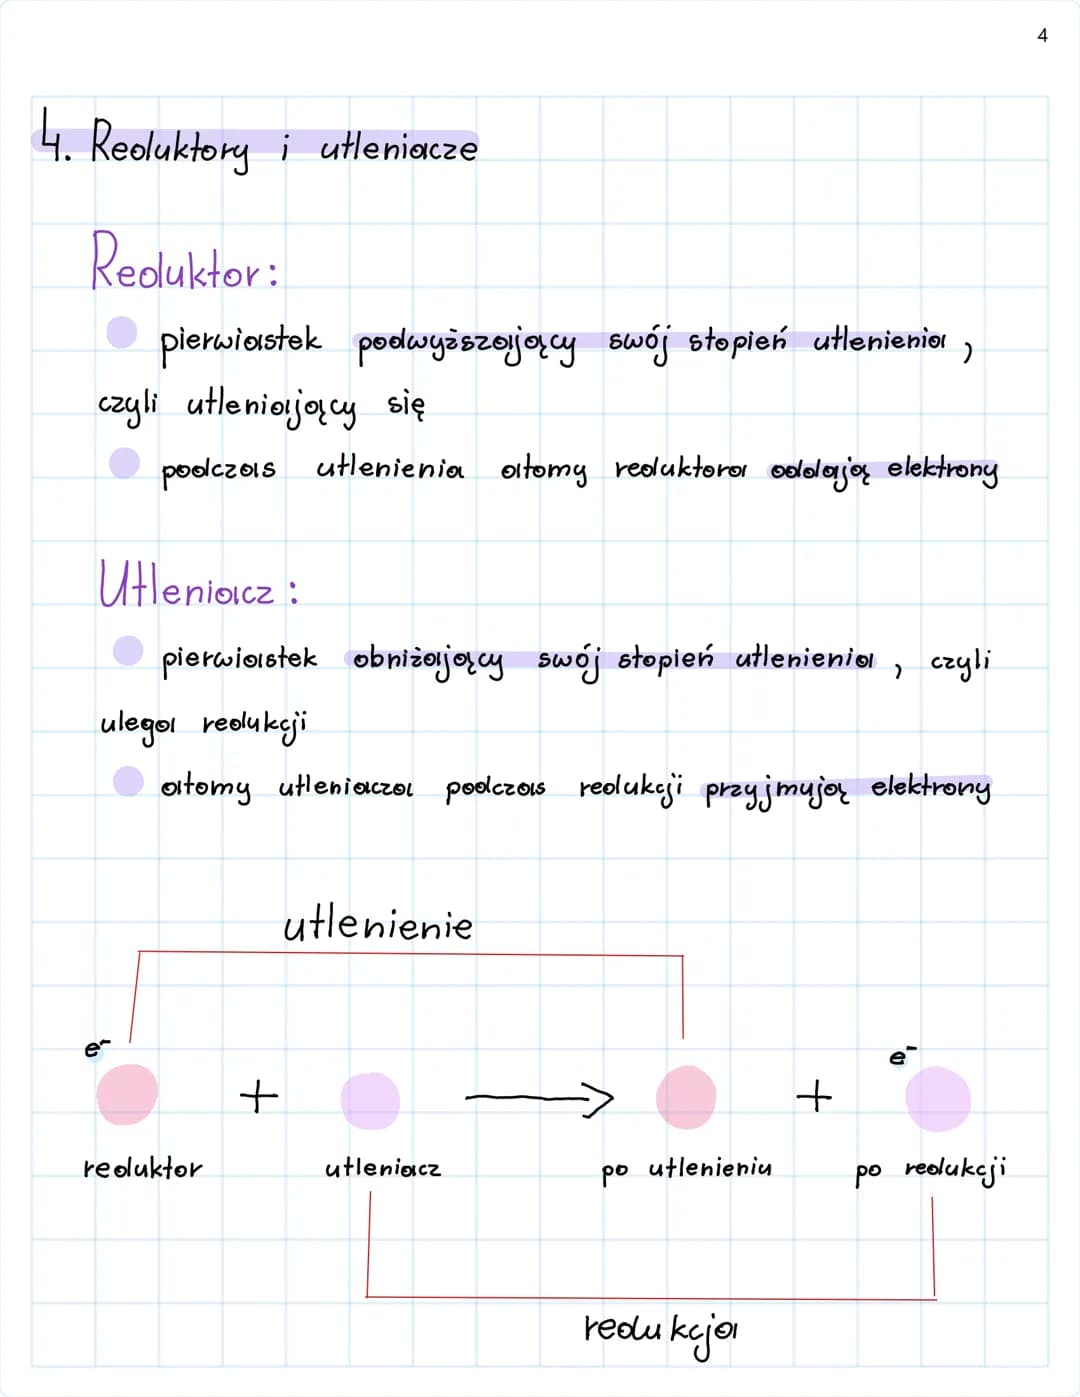 4
4. Reduktory i utleniacze
Reduktor:
pierwiastek podwyższający swój stopień utlenienia,
czyli utleniający się
podczas utlenienia atomy reduktora oddają elektrony
Utleniacz:
pierwiastek obniżający swój stopień utlenienia, czyli
ulega redukcji
atomy utleniacza podczas redukcji przyjmują elektrony
utlenienie
e⁻ e⁻
+ → +
reduktor utleniacz po utlenieniu po redukcji
redukcja